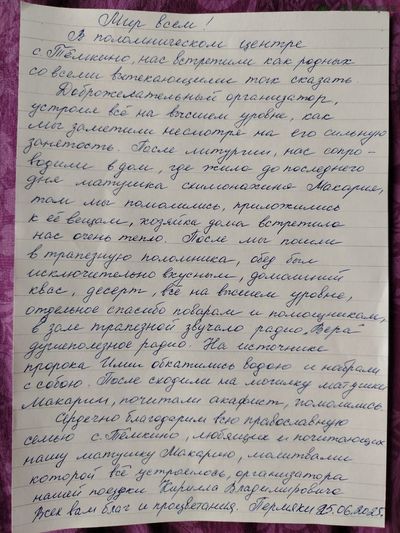 Мир всем!
В паломническом центре
с Тёмкино, нас встретили как родных
со всеми вытекающими так сказать.
Доброжелательный организатор,
устроил всё на высшем уровне, как
мы заметили несмотря на его сильную
занятость. После литургии, нас сопро-
водили в дом, где жила до последнего
дня матушка схимонахиня Макария,
там мы помолились, приложились
к её вещам, хозяйка дома встретила
нас очень тепло. После мы пошли
в трапезную паломника, обед был
исключительно вкусным, домашний
квас, десерт, всё на высшем уровне,
отдельное спасибо поварам и помощникам,
в зале трапезной звучало радио „Вера"
душеполезное радио. На источнике
пророка Илии обкатились водою и набрали
с собою. После сходили на могилку матушки
Макарии, почитали акафист, помолились.
Сердечно благодарим всю православную
семью с. Тёмкино, любящие и почитающих
нашу матушку Макарию, молитвами
которой всё устроилось, организатора
нашей поездки Кирилла Владимировича
Всех вам благ и процветания. Пермяки 25.06.2025.